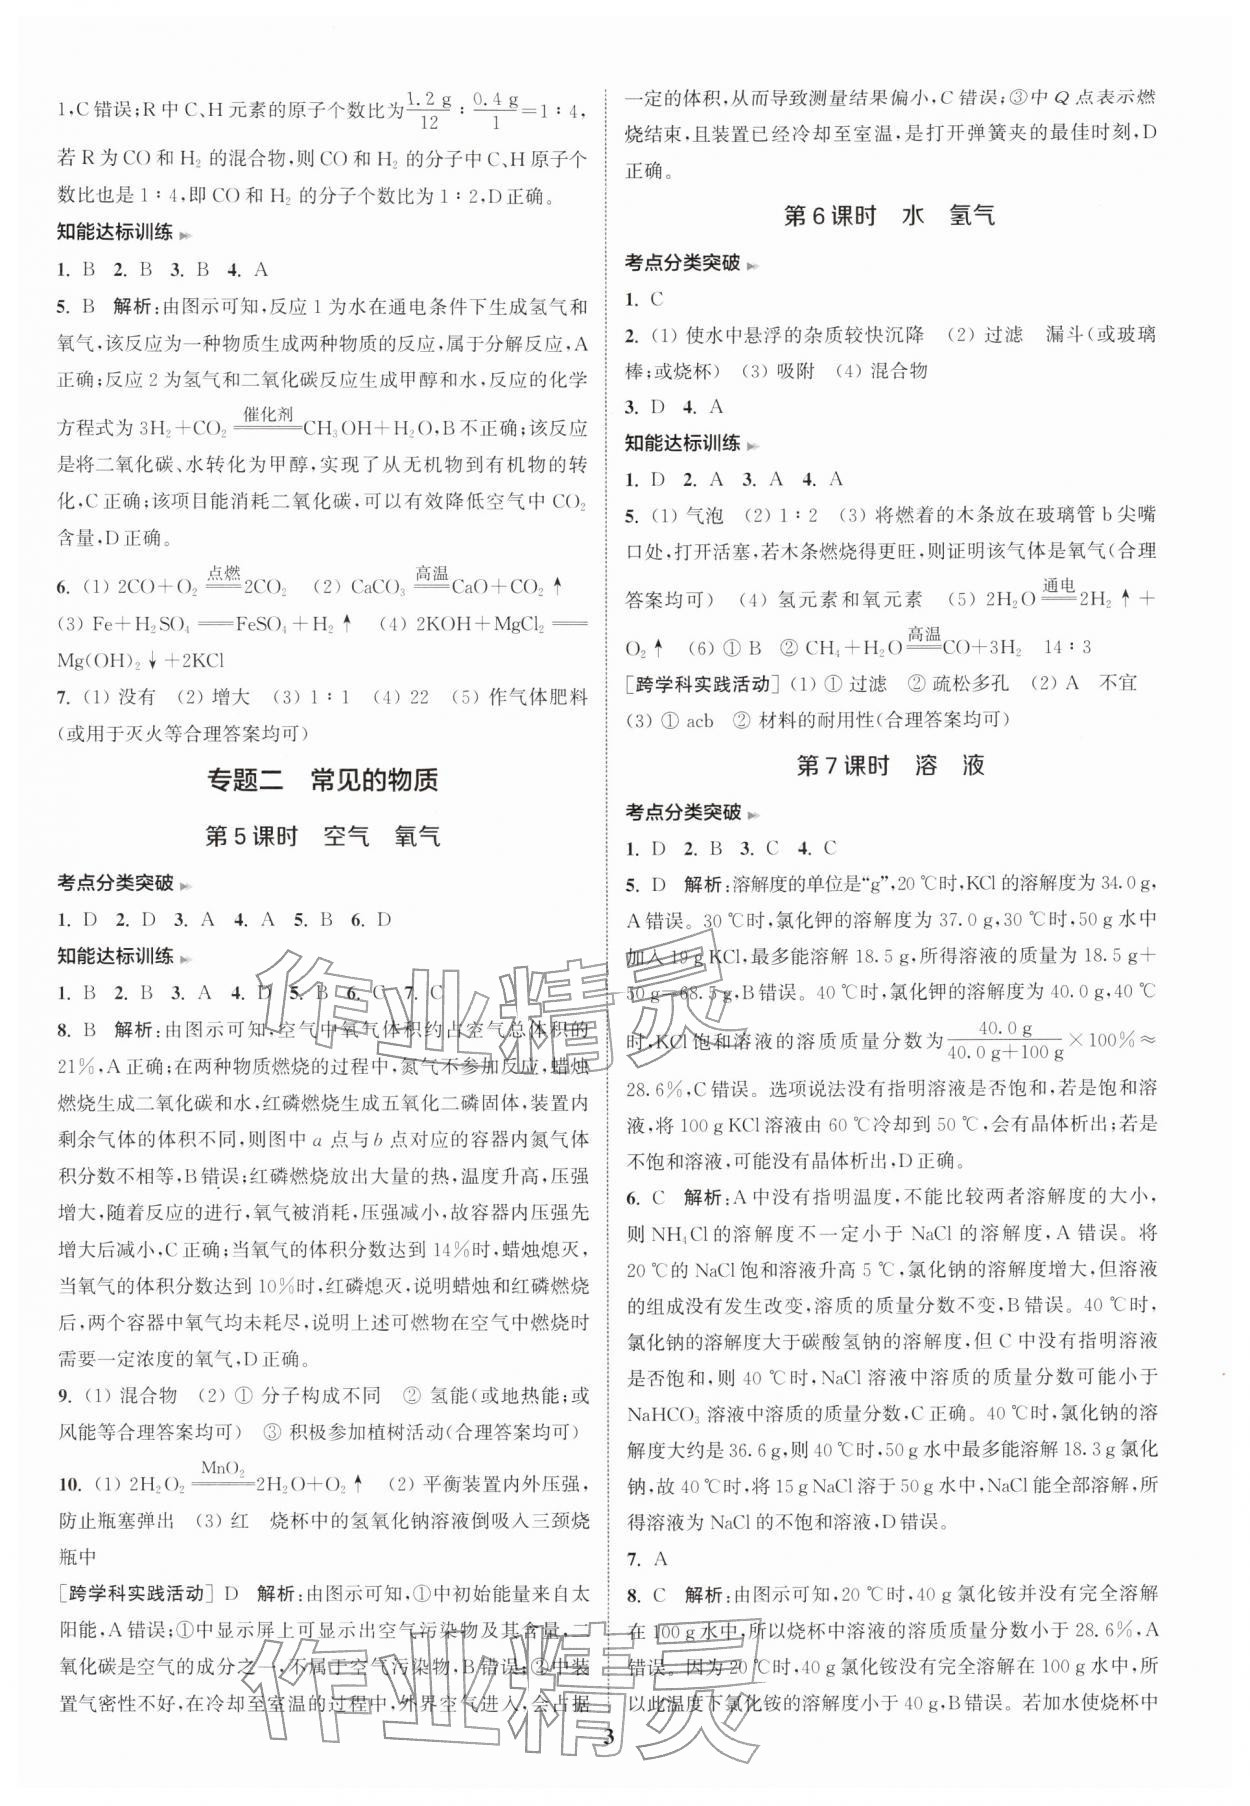 1,C错误;R中C、H元素的原子个数比为1.2 g/12∶0.4 g/1=1∶4,
若R为CO和H₂的混合物,则CO和H₂的分子中C、H原子个
数比也是1∶4,即CO和H₂的分子个数比为1∶2,D正确。
知能达标训练
1. B 2. B 3. B 4. A
5. B 解析:由图示可知,反应1为水在通电条件下生成氢气和
氧气,该反应为一种物质生成两种物质的反应,属于分解反应,A
正确;反应2为氢气和二氧化碳反应生成甲醇和水,反应的化学
方程式为3H₂+CO₂ 催化剂═══ CH₃OH+H₂O,B不正确;该反应
是将二氧化碳、水转化为甲醇,实现了从无机物到有机物的转
化,C正确;该项目能消耗二氧化碳,可以有效降低空气中CO₂
含量,D正确。
6. (1) 2CO+O₂ 点燃═══ 2CO₂ (2) CaCO₃ 高温═══ CaO+CO₂↑
(3) Fe+H₂SO₄═══FeSO₄+H₂↑ (4) 2KOH+MgCl₂═══
Mg(OH)₂↓+2KCl
7. (1) 没有 (2) 增大 (3) 1∶1 (4) 22 (5) 作气体肥料
(或用于灭火等合理答案均可)
专题二 常见的物质
第5课时 空气 氧气
考点分类突破
1. D 2. D 3. A 4. A 5. B 6. D
知能达标训练
1. B 2. B 3. A 4. D 5. B 6. C 7. C
8. B 解析:由图示可知,空气中氧气体积约占空气总体积的
21%,A正确;在两种物质燃烧的过程中,氮气不参加反应,蜡烛
燃烧生成二氧化碳和水,红磷燃烧生成五氧化二磷固体,装置内
剩余气体的体积不同,则图中a点与b点对应的容器内氮气体
积分数不相等,B错误;红磷燃烧放出大量的热,温度升高,压强
增大,随着反应的进行,氧气被消耗,压强减小,故容器内压强先
增大后减小,C正确;当氧气的体积分数达到14%时,蜡烛熄灭,
当氧气的体积分数达到10%时,红磷熄灭,说明蜡烛和红磷燃烧
后,两个容器中氧气均未耗尽,说明上述可燃物在空气中燃烧时
需要一定浓度的氧气,D正确。
9. (1) 混合物 (2) ① 分子构成不同 ② 氢能(或地热能;或
风能等合理答案均可) ③ 积极参加植树活动(合理答案均可)
10. (1) 2H₂O₂ MnO₂═══ 2H₂O+O₂↑ (2) 平衡装置内外压强,
防止瓶塞弹出 (3) 红 烧杯中的氢氧化钠溶液倒吸入三颈烧
瓶中
[跨学科实践活动] D 解析:由图示可知,①中初始能量来自太
阳能,A错误;①中显示屏上可显示空气污染物及其含量,二
氧化碳是空气的成分之一,不属于空气污染物,B错误;③中装
置气密性不好,在冷却至室温的过程中,外界空气进入,会占据
一定的体积,从而导致测量结果偏小,C错误;③中Q点表示燃
烧结束,且装置已经冷却至室温,是打开弹簧夹的最佳时刻,D
正确。
第6课时 水 氢气
考点分类突破
1. C
2. (1) 使水中悬浮的杂质较快沉降 (2) 过滤 漏斗(或玻璃
棒;或烧杯) (3) 吸附 (4) 混合物
3. D 4. A
知能达标训练
1. D 2. A 3. A 4. A
5. (1) 气泡 (2) 1∶2 (3) 将燃着的木条放在玻璃管b尖嘴
口处,打开活塞,若木条燃烧得更旺,则证明该气体是氧气(合理
答案均可) (4) 氢元素和氧元素 (5) 2H₂O 通电═══ 2H₂↑+
O₂↑ (6) ① B ② CH₄+H₂O 高温═══ CO+3H₂ 14∶3
[跨学科实践活动] (1) ① 过滤 ② 疏松多孔 (2) A 不宜
(3) ① acb ② 材料的耐用性(合理答案均可)
第7课时 溶 液
考点分类突破
1. D 2. B 3. C 4. C
5. D 解析:溶解度的单位是“g”,20 ℃时,KCl的溶解度为34.0 g,
A错误。30 ℃时,氯化钾的溶解度为37.0 g,30 ℃时,50 g水中
加入19 g KCl,最多能溶解18.5 g,所得溶液的质量为18.5 g+
50 g=68.5 g,B错误。40 ℃时,氯化钾的溶解度为40.0 g,40 ℃
时,KCl饱和溶液的溶质质量分数为40.0 g/(40.0 g+100 g)×100%≈
28.6%,C错误。选项说法没有指明溶液是否饱和,若是饱和溶
液,将100 g KCl溶液由60 ℃冷却到50 ℃,会有晶体析出;若是
不饱和溶液,可能没有晶体析出,D正确。
6. C 解析:A中没有指明温度,不能比较两者溶解度的大小,
则NH₄Cl的溶解度不一定小于NaCl的溶解度,A错误。将
20 ℃的NaCl饱和溶液升高5 ℃,氯化钠的溶解度增大,但溶液
的组成没有发生改变,溶质的质量分数不变,B错误。40 ℃时,
氯化钠的溶解度大于碳酸氢钠的溶解度,但C中没有指明溶液
是否饱和,则40 ℃时,NaCl溶液中溶质的质量分数可能小于
NaHCO₃溶液中溶质的质量分数,C正确。40 ℃时,氯化钠的溶
解度大约是36.6 g,则40 ℃时,50 g水中最多能溶解18.3 g氯化
钠,故40 ℃时,将15 g NaCl溶于50 g水中,NaCl能全部溶解,所
得溶液为NaCl的不饱和溶液,D错误。
7. A
8. C 解析:由图示可知,20 ℃时,40 g氯化铵并没有完全溶解
在100 g水中,所以烧杯中溶液的溶质质量分数小于28.6%,A
错误。因为20 ℃时,40 g氯化铵没有完全溶解在100 g水中,所
以此温度下氯化铵的溶解度小于40 g,B错误。若加水使烧杯中
3
作业精灵
作业精灵